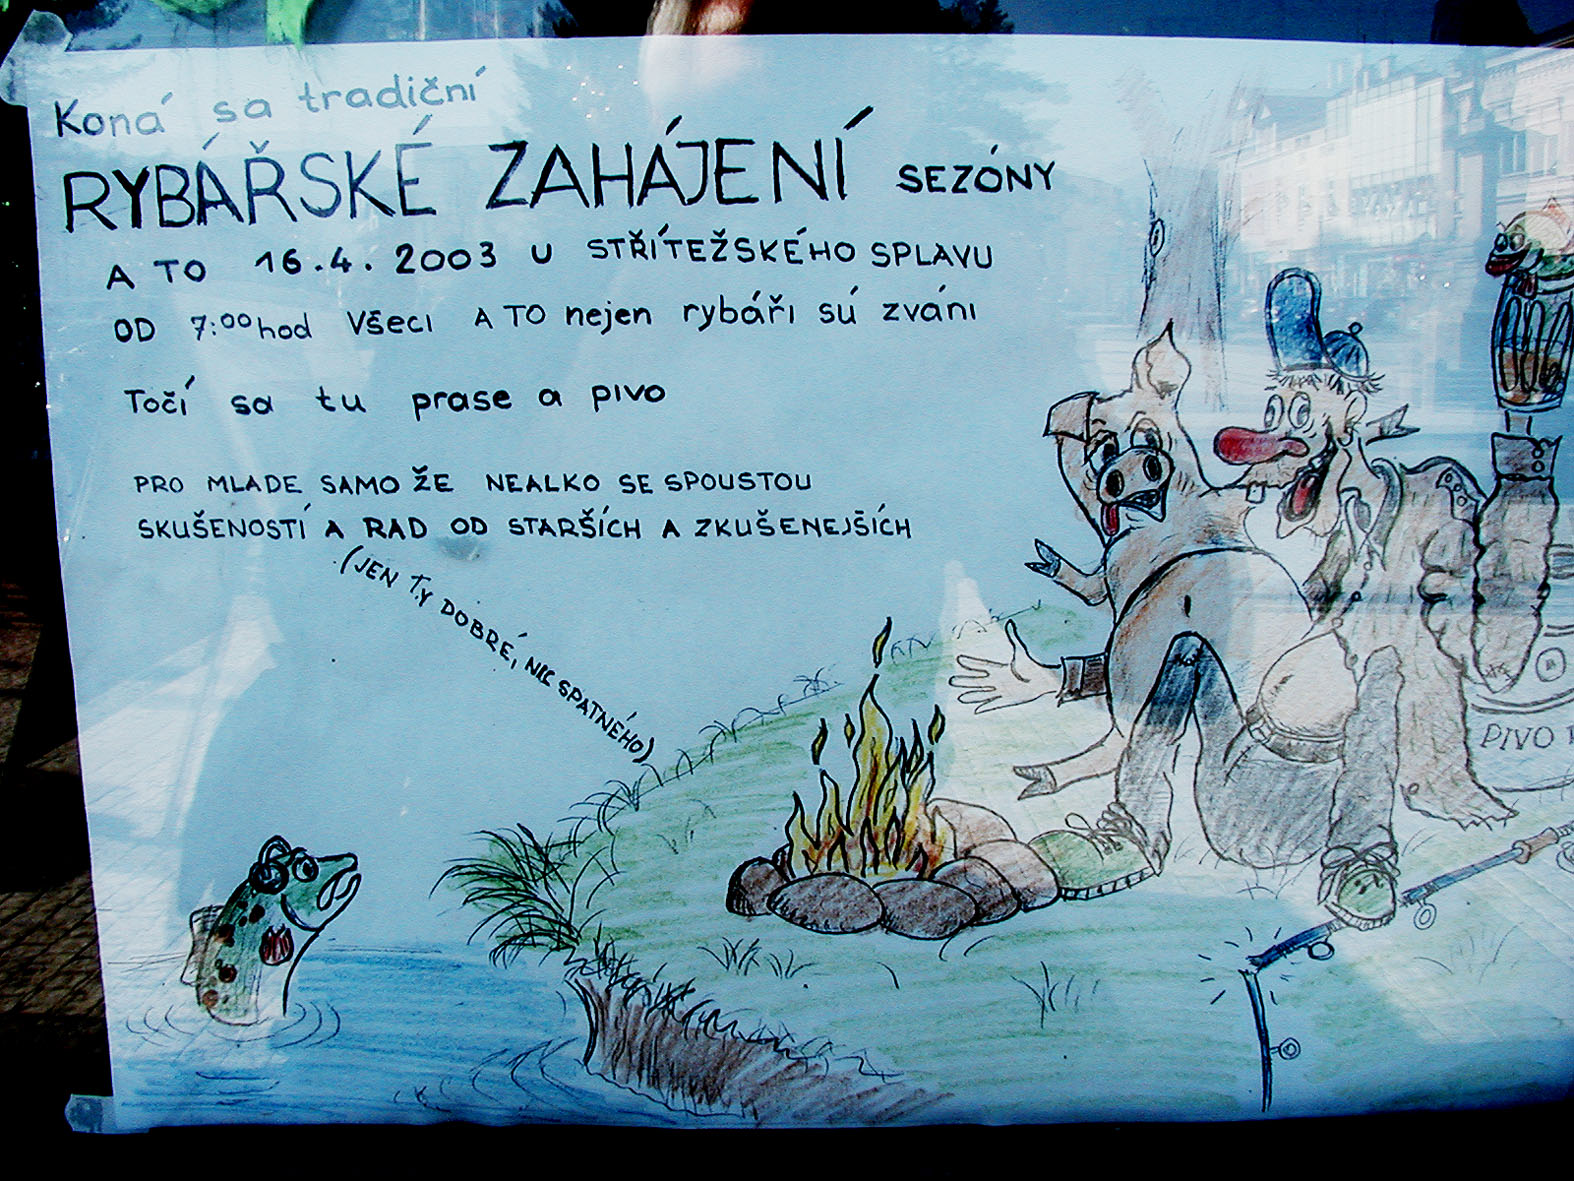 Koná sa tradiční
RYBÁŘSKÉ ZAHÁJENÍ SEZÓNY
A TO 16.4. 2003 U STŘÍTEŽSKÉHO SPLAVU
OD 7:00 hod Všeci A TO nejen rybáři sú zváni
Točí sa tu prase a pivo
PRO MLADE SAMO ŽE NEALKO SE SPOUSTOU
SKUŠENOSTÍ A RAD OD STARŠÍCH A ZKUŠENEJŠÍCH
(JEN TY DOBRÉ, NIC SPATNÉHO)
PIVO